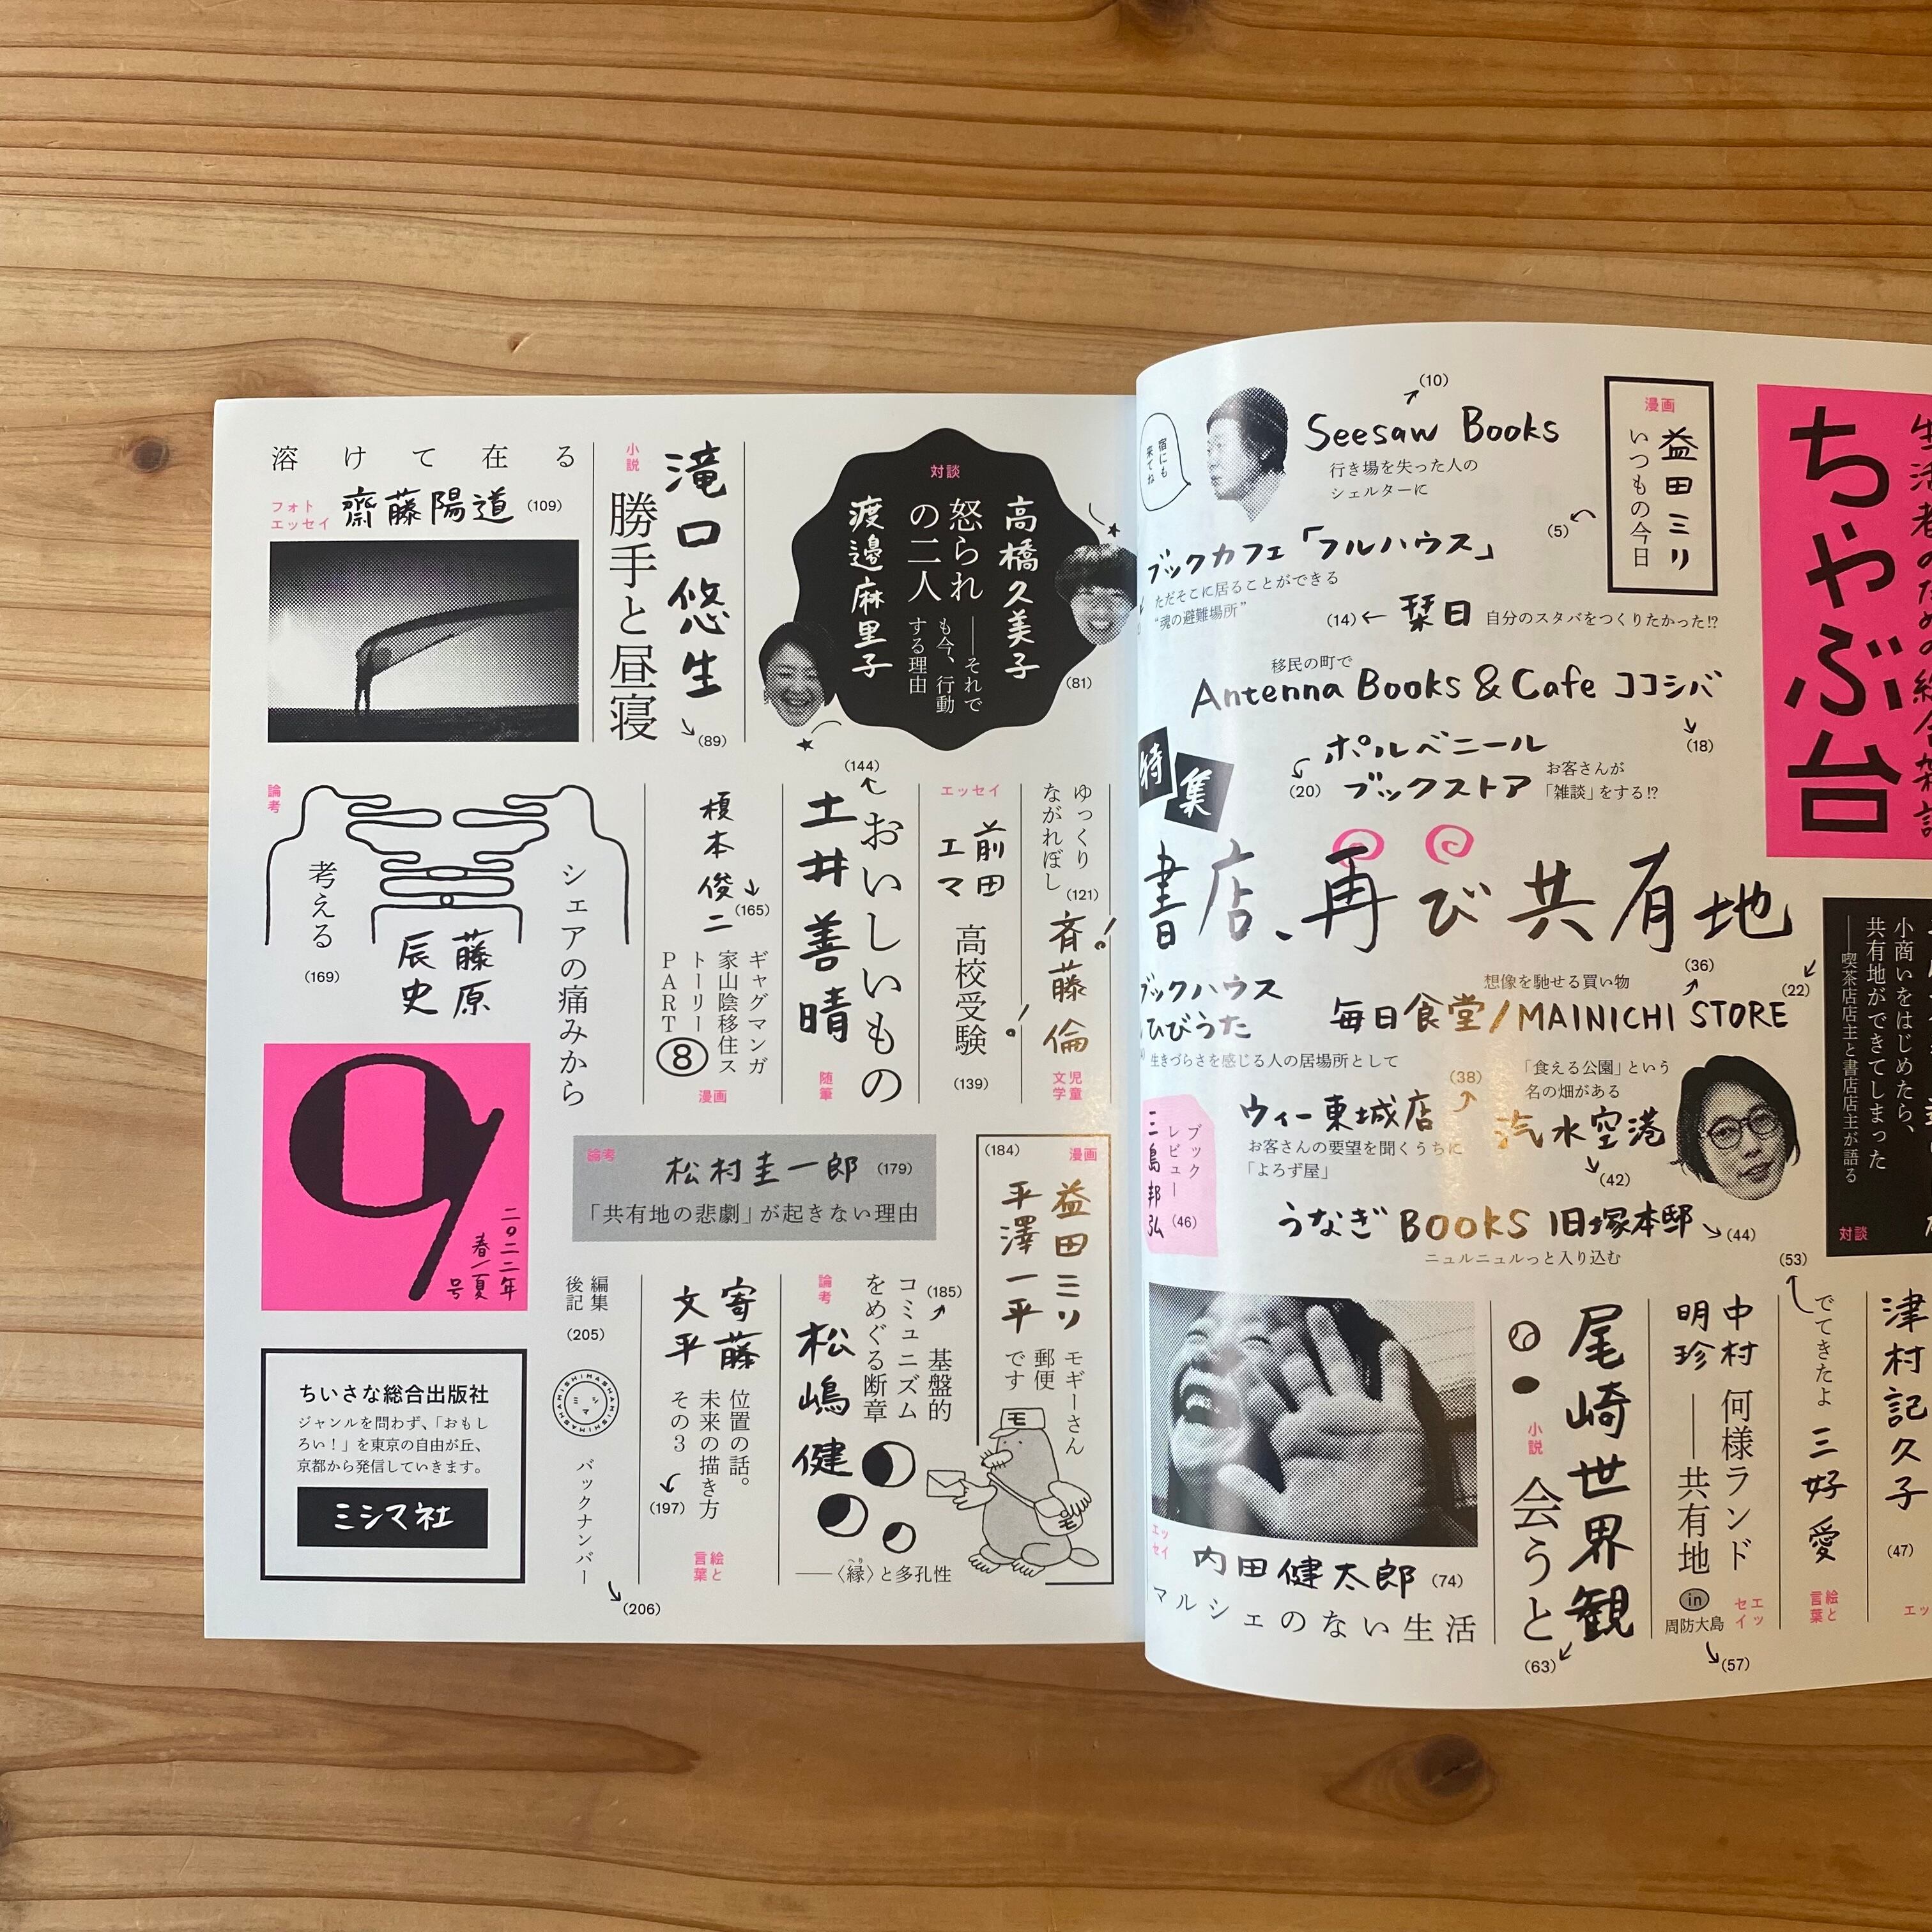 ちゃぶ台
漫画
益田ミリ
いつもの今日
(5)
宿にも
来てね
(10)
Seesaw Books
行き場を失った人の
シェルターに
ブックカフェ「フルハウス」
ただそこに居ることができる
“魂の避難場所”
(14)← 栞日 自分のスタバをつくりたかった!?
移民の町で
Antenna Books & Cafe ココシバ
(18)
ポルベニール
ブックストア
(20)
お客さんが
「雑談」をする!?
特集
書店、再び共有地
小商いをはじめたら、
共有地ができてしまった
──喫茶店店主と書店店主が語る
対談
(22)
ブックハウス
ひびうた
生きづらさを感じる人の居場所として
想像を馳せる買い物
(36)
毎日食堂/MAINICHI STORE
(38)
ウィー東城店
お客さんの要望を聞くうちに
「よろず屋」
「食える公園」という
名の畑がある
汽水空港
(42)
うなぎBOOKS 旧塚本邸
(44)
ニュルニュルっと入り込む
ブック
レビュー
三島邦弘
(46)
津村記久子
(47)
(53)
できたよ 三好愛
絵と
言葉
中村
明珍
何様ランド
──共有地
in
周防大島
エッ
セイ
(57)
尾崎世界観
小説
会うと
(63)
エッ
セイ
内田健太郎 (74)
マルシェのない生活
対談
高橋久美子
怒られ
の二人
──それで
も今、行動
する理由
渡邊麻里子
(81)
滝口悠生
小説
勝手と昼寝
(89)
溶けて在る
フォト
エッセイ
齋藤陽道 (109)
ゆっくり
ながれぼし
(121)
斉藤倫
児童
文学
エッセイ
前田
エマ
高校受験
(139)
(144)
おいしいもの
土井善晴
随筆
榎本俊二
(165)
ギャグマンガ
家山陰移住ス
トーリー
PART8
漫画
論考
シェアの痛みから
考える
藤原
辰史
(169)
論考
松村圭一郎 (179)
「共有地の悲劇」が起きない理由
(184)
漫画
益田ミリ
平澤一平
モギーさん
郵便
です
モ
モ
(185)
基盤的
コミュニズム
をめぐる断章
論考
松嶋健
──〈縁〉と多孔性
へり
寄藤
文平
位置の話。
未来の描き方
その3
(197)
絵と
言葉
編集
後記
(205)
MISHIMASHA
ミシマ
バックナンバー
(206)
9
二〇二二年
春/夏
号
ちいさな総合出版社
ジャンルを問わず、「おもし
ろい！」を東京の自由が丘、
京都から発信していきます。
ミシマ社